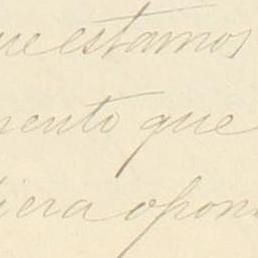 ue estamos
mento que
iera opon